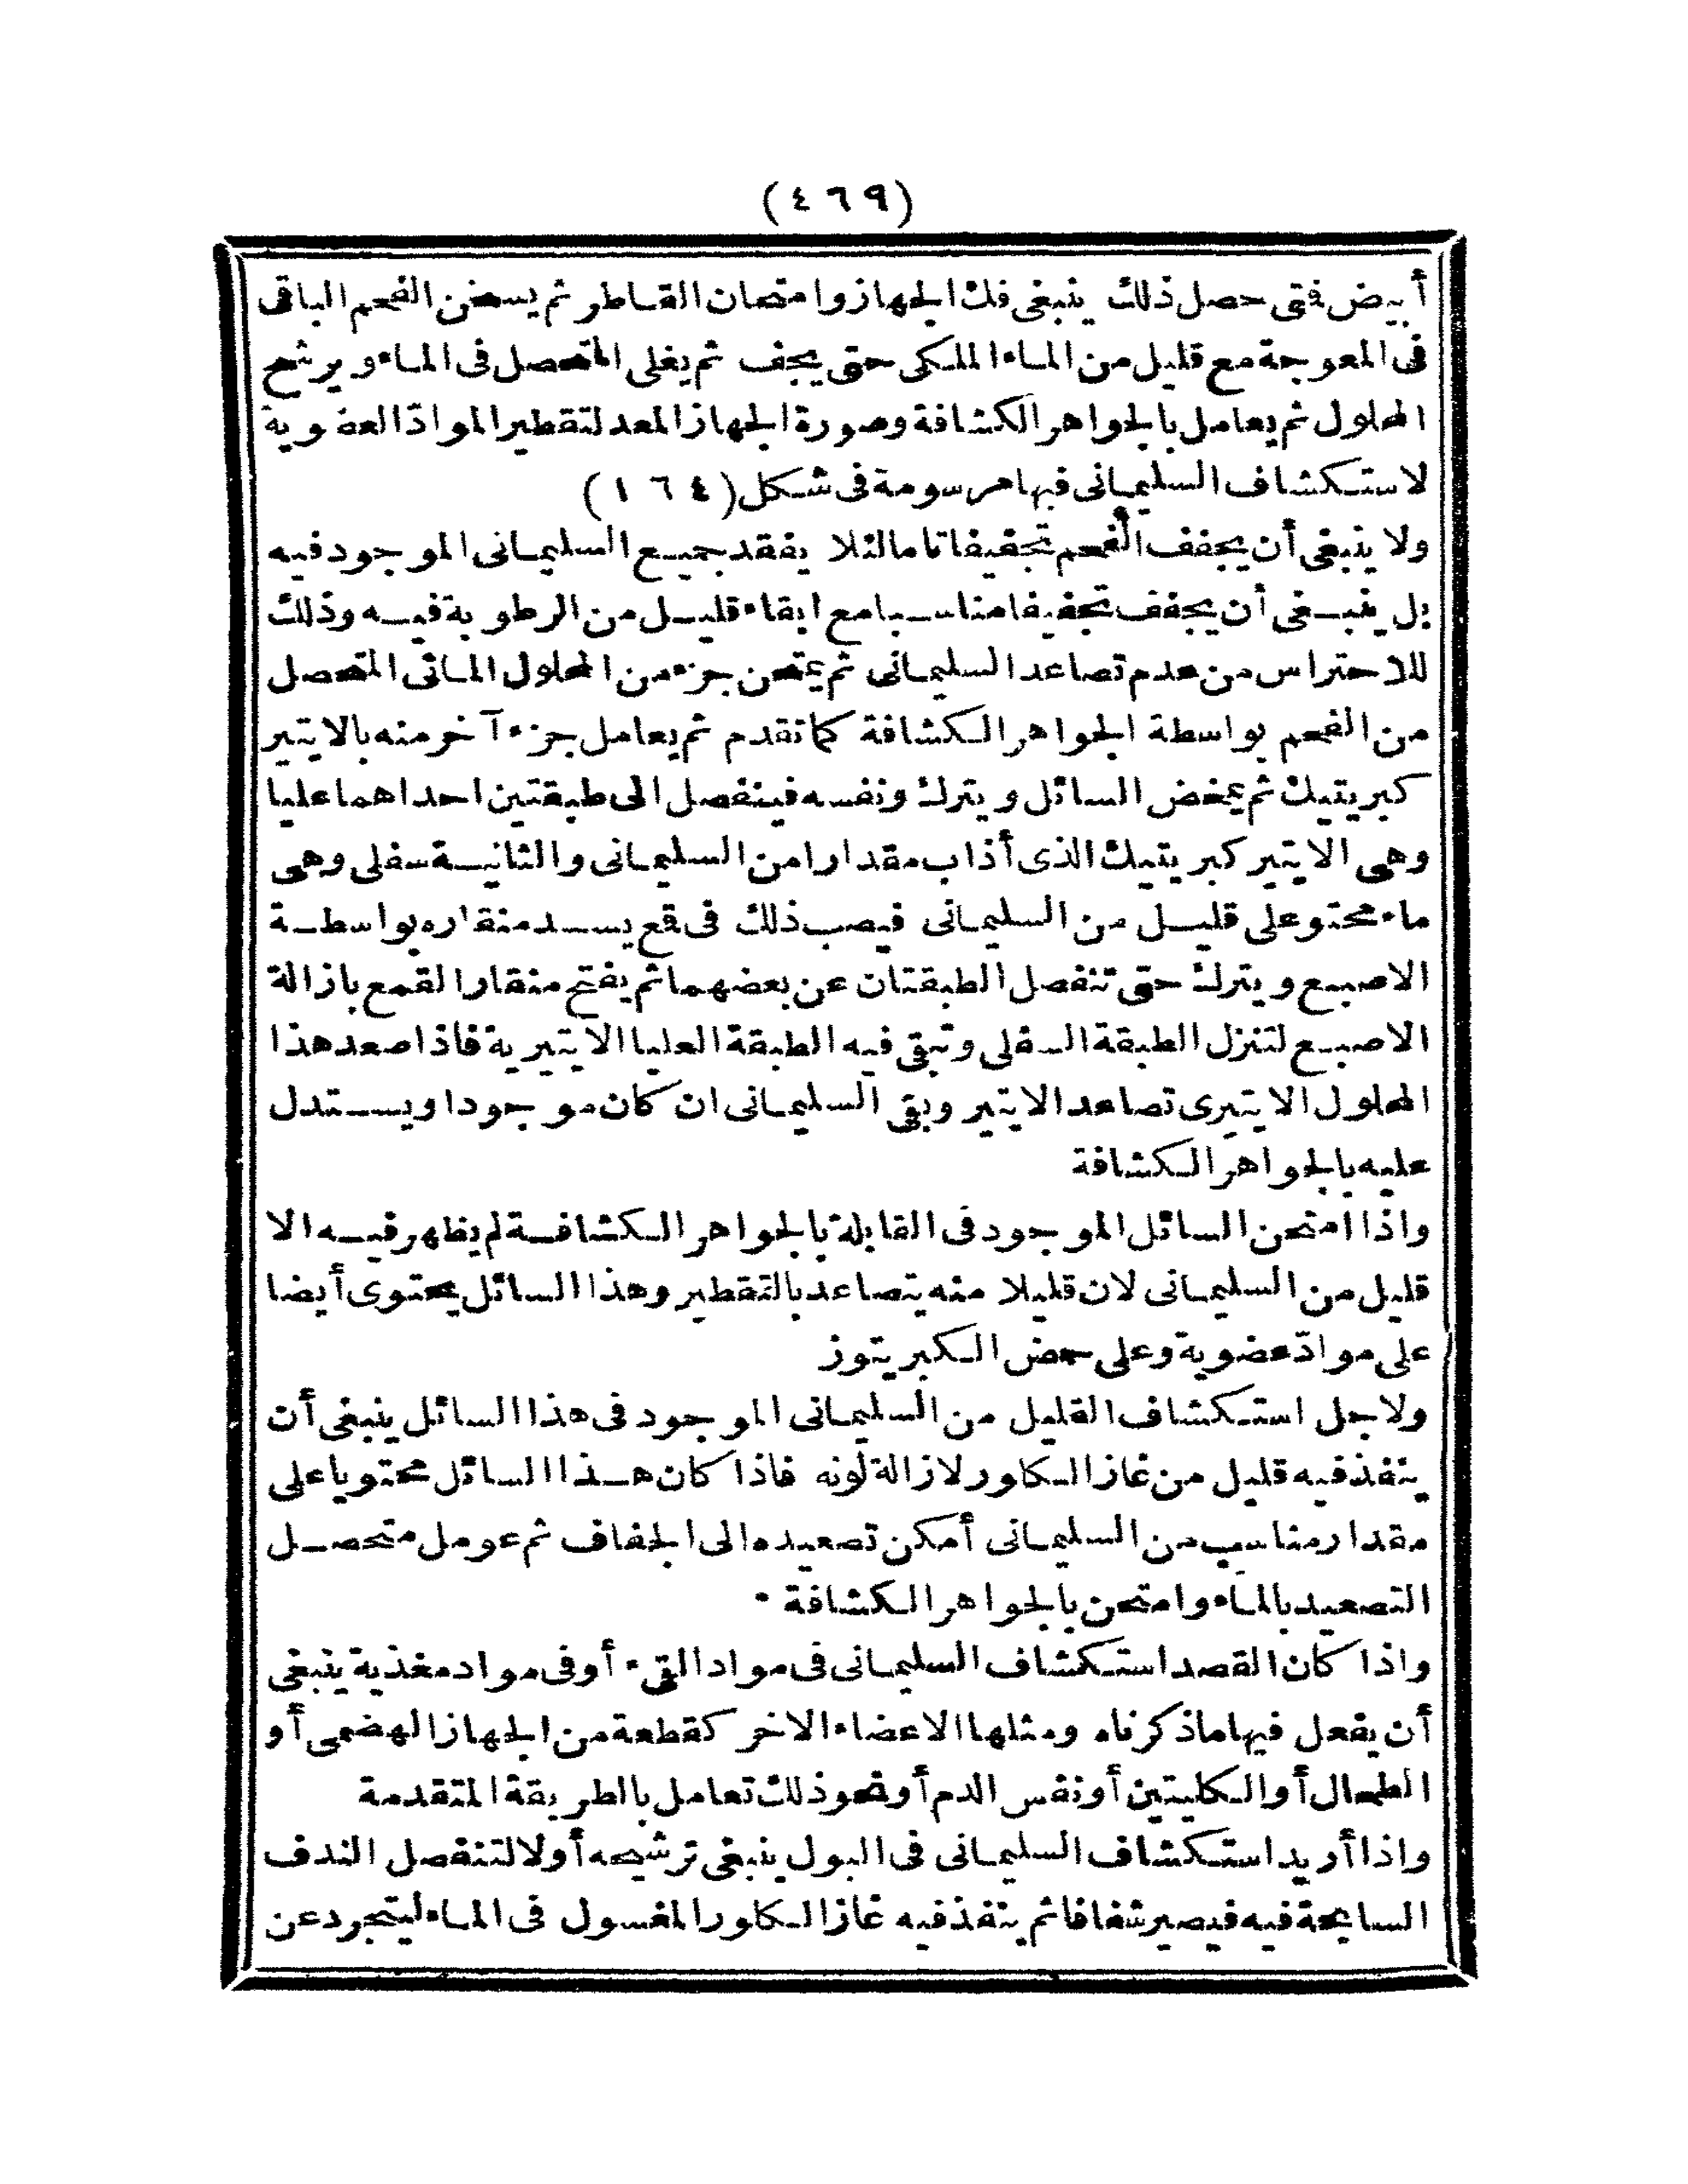 (٤٦٩)
أبيض فتى حصل ذلك ينبغى فك الجهاز وامتحان القاطر ثم يسخن الفحم الباقى
فى المعوجة مع قليل من الماء الملكى حتى يجف ثم يغلى المتحصل فى الماء ويرشح
المحلول ثم يعامل بالجواهر الكشافة وصورة الجهاز المعد لتقطير الموادّ العضوية
لاستكشاف السليمانى فيها مرسومة فى شكل (١٦٤)
ولا ينبغى أن يجفف الفحم تجفيفا تاما لئلا يفقد جميع السليمانى الموجود فيه
بل ينبغى أن يجفف تجفيفا مناسبا مع ابقاء قليل من الرطوبة فيه وذلك
للاحتراس من عدم تصاعد السليمانى ثم يمتحن جزء من المحلول المائى المتحصل
من الفحم بواسطة الجواهر الكشافة كما تقدم ثم يعامل جزء آخر منه بالايتير
كبريتيك ثم يمخض السائل ويترك ونفسه فينفصل الى طبقتين احداهما عليا
وهى الايتير كبريتيك الذى أذاب مقدارا من السليمانى والثانية سفلى وهى
ماء محتو على قليل من السليمانى فيصب ذلك فى قمع يسد منقاره بواسطة
الاصبع ويترك حتى تنفصل الطبقتان عن بعضهما ثم يفتح منقار القمع بازالة
الاصبع لتنزل الطبقة السفلى وتبقى فيه الطبقة العليا الايتيرية فاذا صعد هذا
المحلول الايتيرى تصاعد الايتير وبقى السليمانى ان كان موجودا ويستدل
عليه بالجواهر الكشافة
واذا امتحن السائل الموجود فى القابلة بالجواهر الكشافة لم يظهر فيه الا
قليل من السليمانى لان قليلا منه يتصاعد بالتقطير وهذا السائل يحتوى أيضا
على موادّ عضوية وعلى حمض الكبريتوز
ولاجل استكشاف القليل من السليمانى الموجود فى هذا السائل ينبغى أن
ينفذ فيه قليل من غاز الكلور لازالة لونه فاذا كان هذا السائل محتويا على
مقدار مناسب من السليمانى أمكن تصعيده الى الجفاف ثم عومل متحصل
التصعيد بالماء وامتحن بالجواهر الكشافة ٠
واذا كان القصد استكشاف السليمانى فى مواد القىء أوفى مواد مغذية ينبغى
أن يفعل فيها ماذكرناه ومثلها الاعضاء الاخر كقطعة من الجهاز الهضمى أو
الطحال أو الكليتين أو نفس الدم أو نحو ذلك تعامل بالطريقة المتقدمة
واذا أريد استكشاف السليمانى فى البول ينبغى ترشيحه أولا لتنفصل الندف
السابحة فيه فيصير شفافا ثم ينفذ فيه غاز الكلور المغسول فى الماء ليتجرد عن